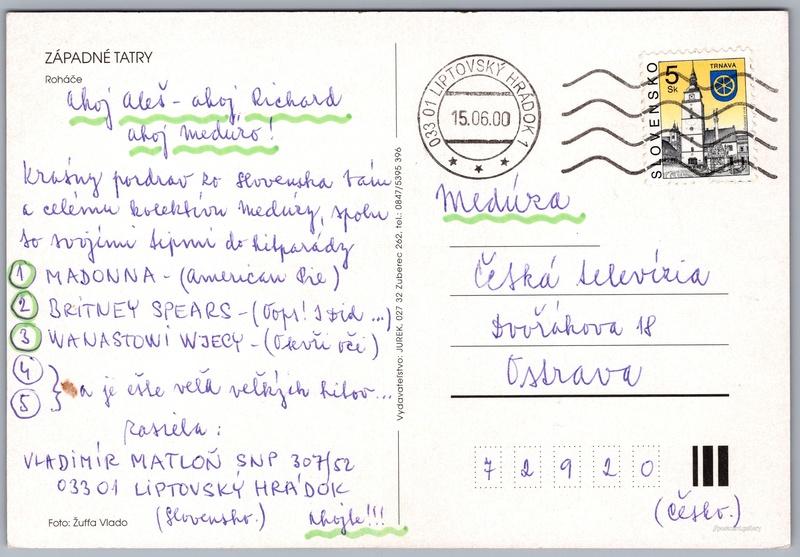 ZÁPADNÉ TATRY
Roháče
Ahoj Aleš - ahoj Richard
ahoj medúzo!
Krásny pozdrav zo Slovenska Vám
a celému kolektívu medúzy, spolu
so svojími tipmi do hitparády
1 MADONNA - (American Pie)
2 BRITNEY SPEARS - (Oops! I Did ...)
3 WANASTOWI WJECY - (Otevři oči)
4
5 } a je ešte veľa veľkých hitov...
zasiela:
VLADIMÍR MATLOŇ SNP 307/52
033 01 LIPTOVSKÝ HRÁDOK
(Slovensko.) Ahojte!!!
Foto: Žuffa Vlado
Vydavateľstvo: JUREK, 027 32 Zuberec 262, tel.: 0847/5395 396
033 01 LIPTOVSKÝ HRÁDOK 1
15.06.00
SLOVENSKO
5 Sk
TRNAVA
Medúza
Česká televízia
Dvořákova 18
Ostrava
7 2 9 2 0
(Česko.)